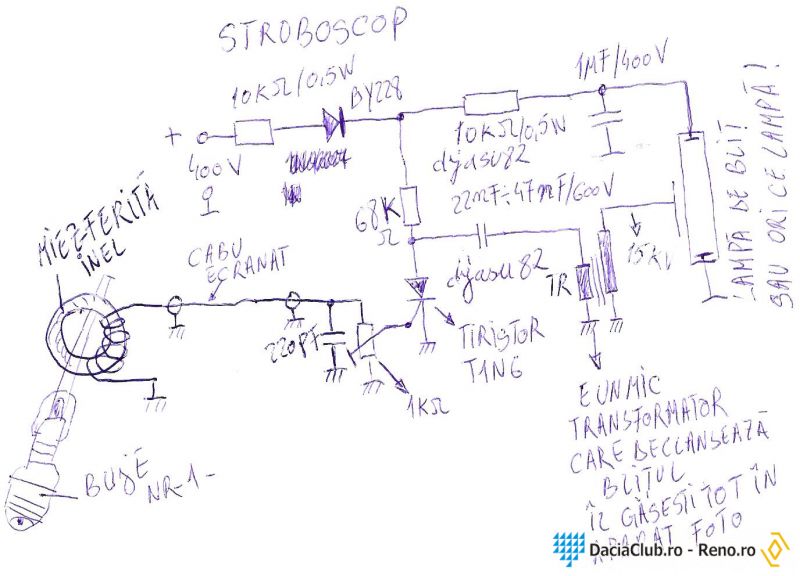 STROBOSCOP
10KΩ/0,5W
BY228
1MF/400V
+
400V
10KΩ/0,5W
djasu82
22nF÷47nF/600V
68K
Ω
MIEZ-FERITĂ
INEL
CABLU
ECRANAT
djasu82
TR
15KV
LAMPĂ DE BLIȚ
SAU ORICE LAMPĂ!
220PF
TIRISTOR
T1N6
1KΩ
BUJIE
NR-1-
E UN MIC
TRANSFORMATOR
CARE DECLANSEAZĂ
BLIȚUL
ÎL GĂSESTI TOT ÎN
APARAT FOTO
DaciaClub.ro - Reno.ro